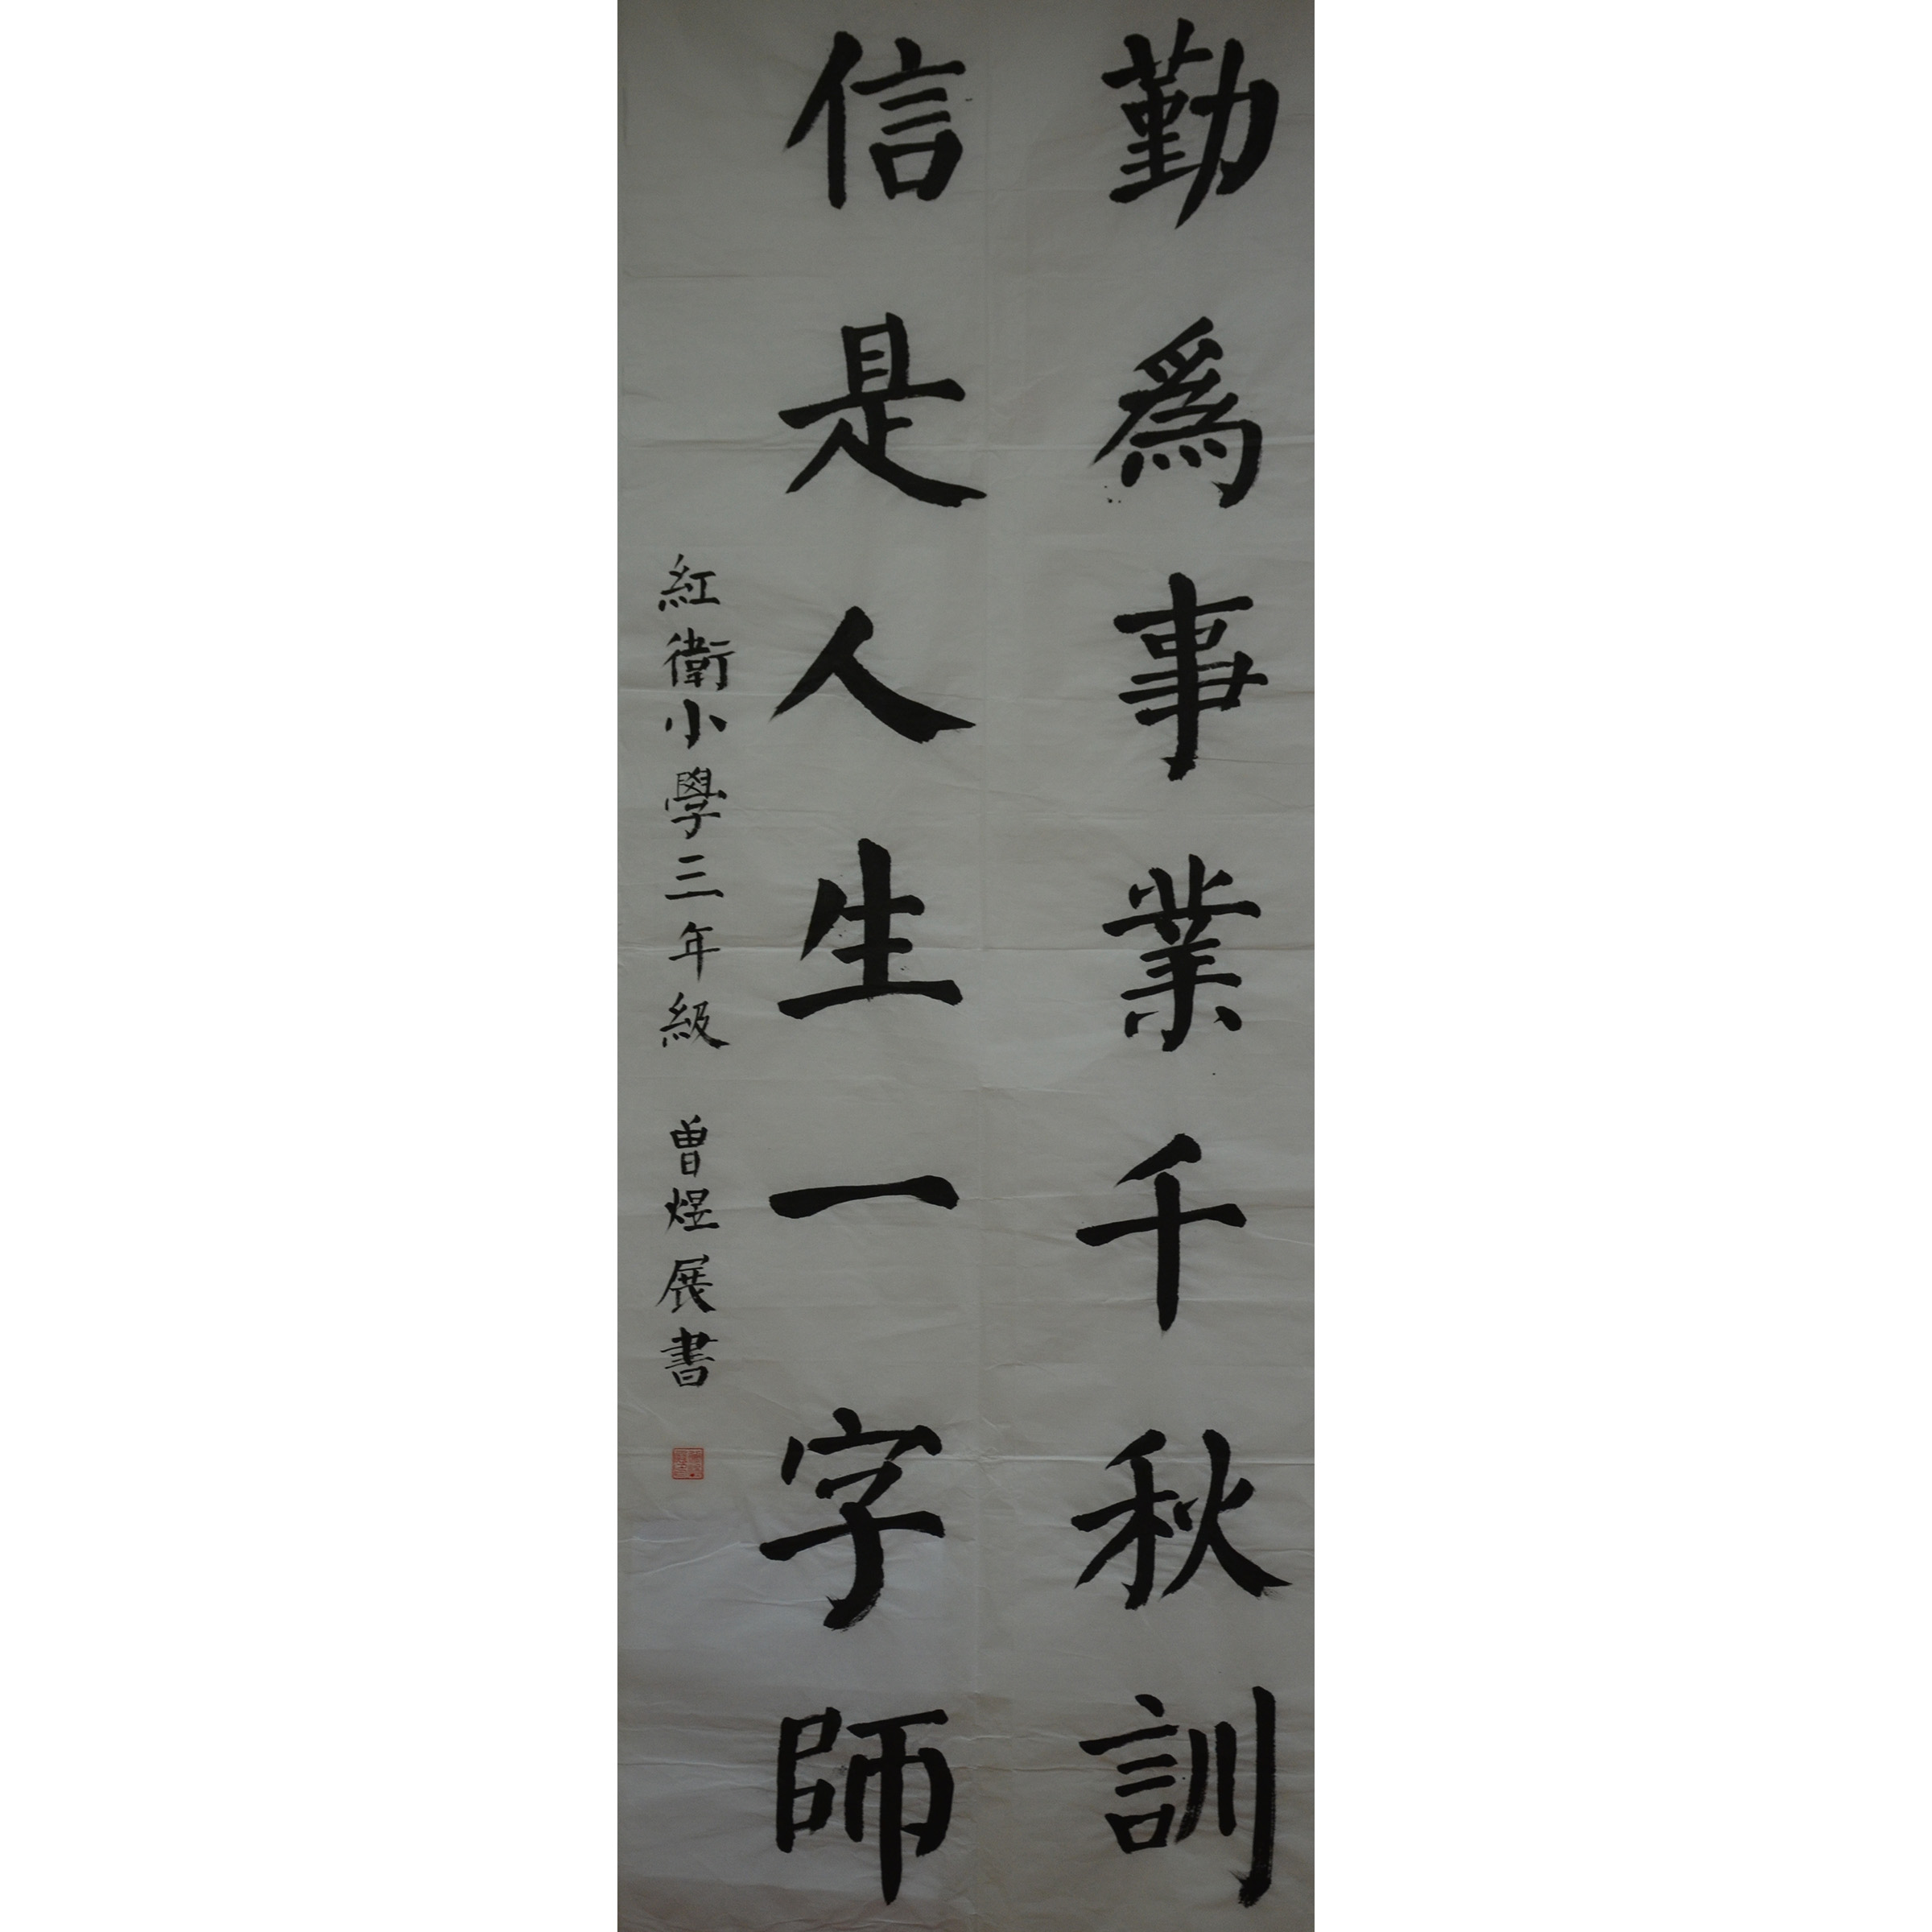 勤爲事業千秋訓
信是人生一字師
紅衛小學三年級 曾煜展書